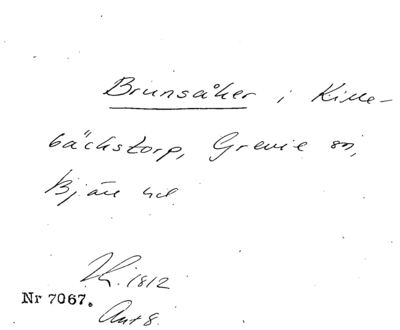 Brunsåker i Kille-
bäckstorp, Grevie sn,
Bjäre hd.
1812
Nr 7067.
Akt 8.